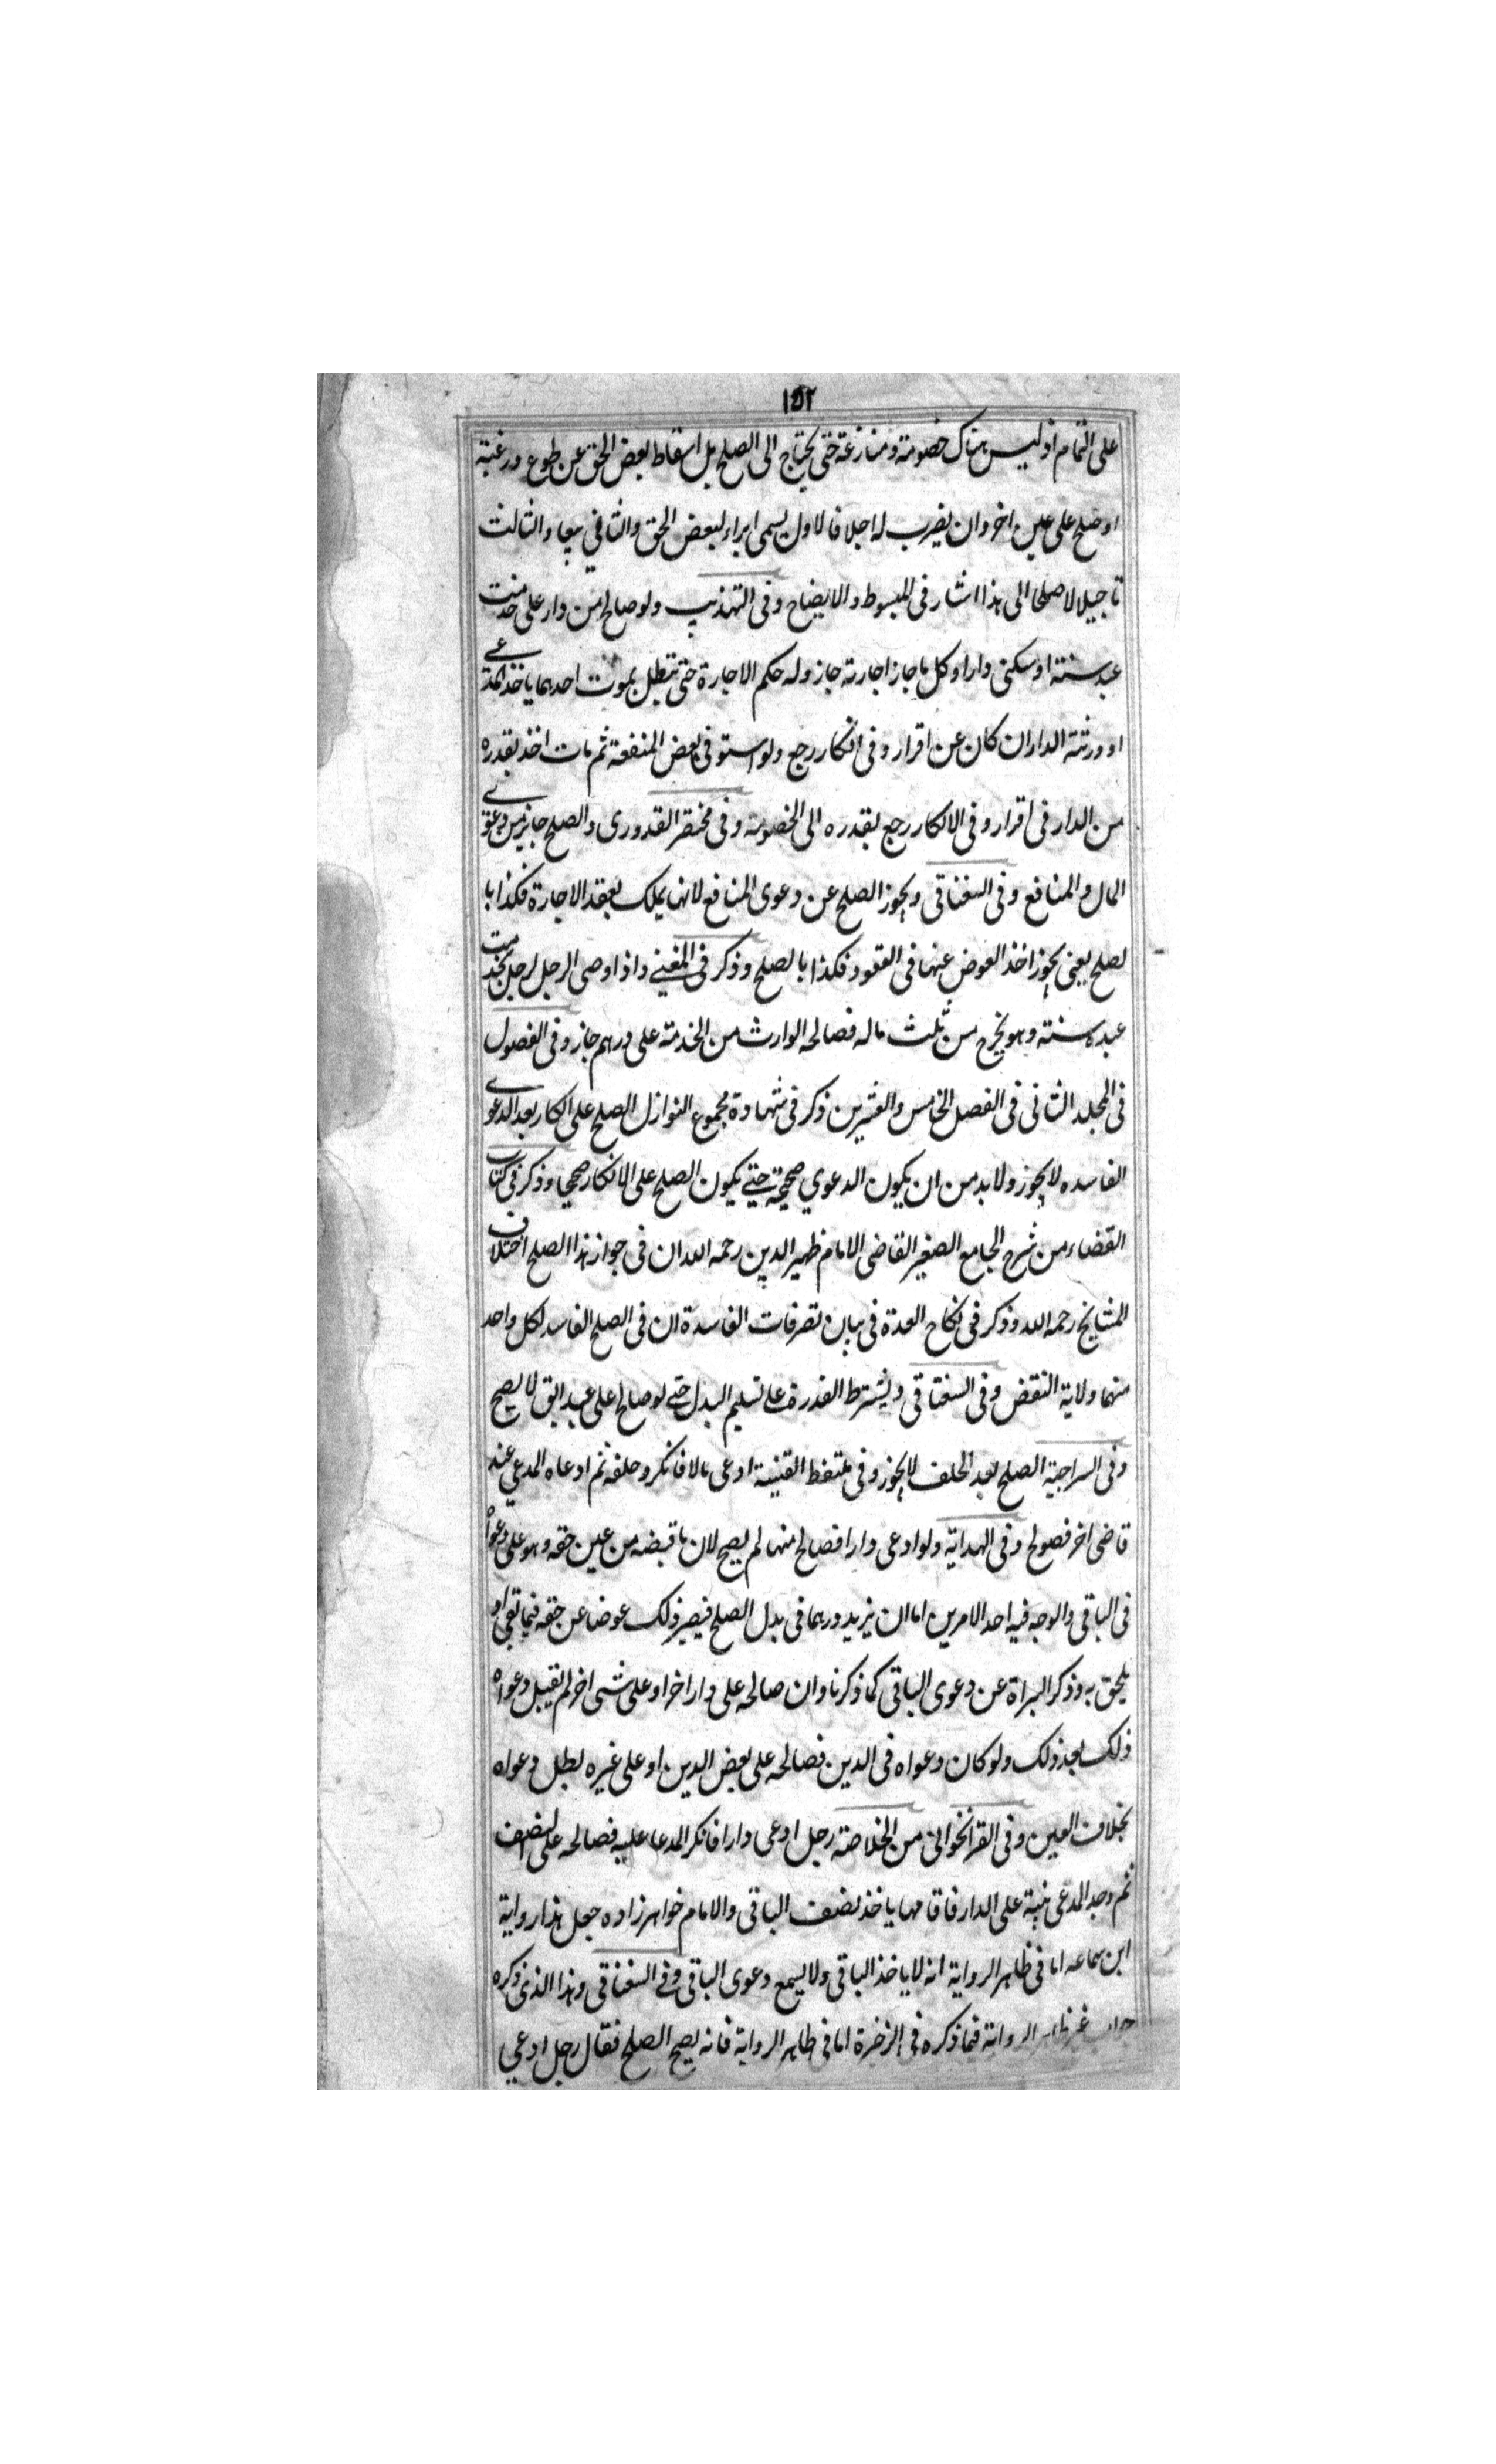 ١٥٢
على التمام اذ ليس هناك خصومة ومنازعة حتى يحتاج الى الصلح بل اسقاط بعض الحق عن طوع ورغبة
او صلح على عين اخر وان يضرب له اجلا فالاول يسمى ابراء لبعض الحق والثاني بيعا والثالث
تاجيلا لا صلحا الى هذا اشار فى المبسوط والايضاح وفى التهذيب ولو صالح من دار على خدمت
عبد سنة او سكنى دار او كل ما جاز اجارته جاز وله حكم الاجارة حتى تبطل بموت احدهما ياخذ المدعے
او ورثته الدار ان كان عن اقرار وفى انكار رجع ولو استوفى بعض المنفعة ثم مات اخذ بقدره
من الدار فى اقرار وفى الانكار رجع بقدره الى الخصومة وفى مختصر القدورى والصلح جايز من دعوے
المال والمنافع وفى السغناقى ويجوز الصلح عن دعوى المنافع لانها يملك بعقد الاجارة فكذا با
لصلح يعنى يجوز اخذ العوض عنها فى العقود فكذا بالصلح وذكر فى المغنے واذا اوصى الرجل لرجل بخدمت
عبده سنة وهو يخرج من ثلث ماله فصالحه الوارث من الخدمة على درهم جاز وفى الفصول
فى المجلد الثانى فى الفصل الخامس والعشرين ذكر فى شهادة مجموع النوازل الصلح على انكار بعد الدعوے
الفاسده لا يجوز ولا بد من ان يكون الدعوي صحيحة حتے يكون الصلح على الانكار صحيحا وذكر فى كتاب
القضاء من شرح الجامع الصغير القاضى الامام ظهير الدين رحمه الله ان فى جواز هذا الصلح اختلاف
المشايخ رحمه الله وذكر فى نكاح العدة فى بيان تصرفات الفاسدة ان فى الصلح الفاسد لكل واحد
منهما ولاية النقض وفى السغناقى ويشترط القدرة على تسليم البدل حتے لو صالح على عبد ابق لا يصح
وفى السراجية الصلح بعد الحلف لا يجوز وفى ملتقط القنية ادعى مالا فانكر وحلفه ثم ادعاه المدعي عند
قاضى اخر فصولح وفى الهداية ولو ادعى دارا فصالح منها لم يصح لان ما قبضه من عين حقه وهو على دعواه
فى الباقى والوجه فيه احد الامرين اما ان يزيد درهما فى بدل الصلح فيصير ذلك عوضا عن حقه فيما بقى او
يلحق به وذكر البراة عن دعوى الباقى كما ذكرنا وان صالحه على دار اخر او على شى اخر لم تقبل دعواه
ذلك بعد ذلك ولو كان دعواه فى الدين فصالحه على بعض الدين او على غيره بطل دعواه
بخلاف العين وفى القراخوانى من الخلاصة رجل ادعى دارا فانكر المدعا عليه فصالحه على النصف
ثم وجد المدعى بينة على الدار فاقامها ياخذ نصف الباقى والامام خواهرزاده جعل هذا رواية
ابن سماعه اما فى ظاهر الرواية انه لا ياخذ الباقى ولا يسمع دعوى الباقى وفے السغناقى وهذا الذى ذكره
جواب غير ظاهر الرواية فما ذكره فى الذخرة اما فى ظاهر الرواية فانه يصح الصلح فقال رجل ادعي